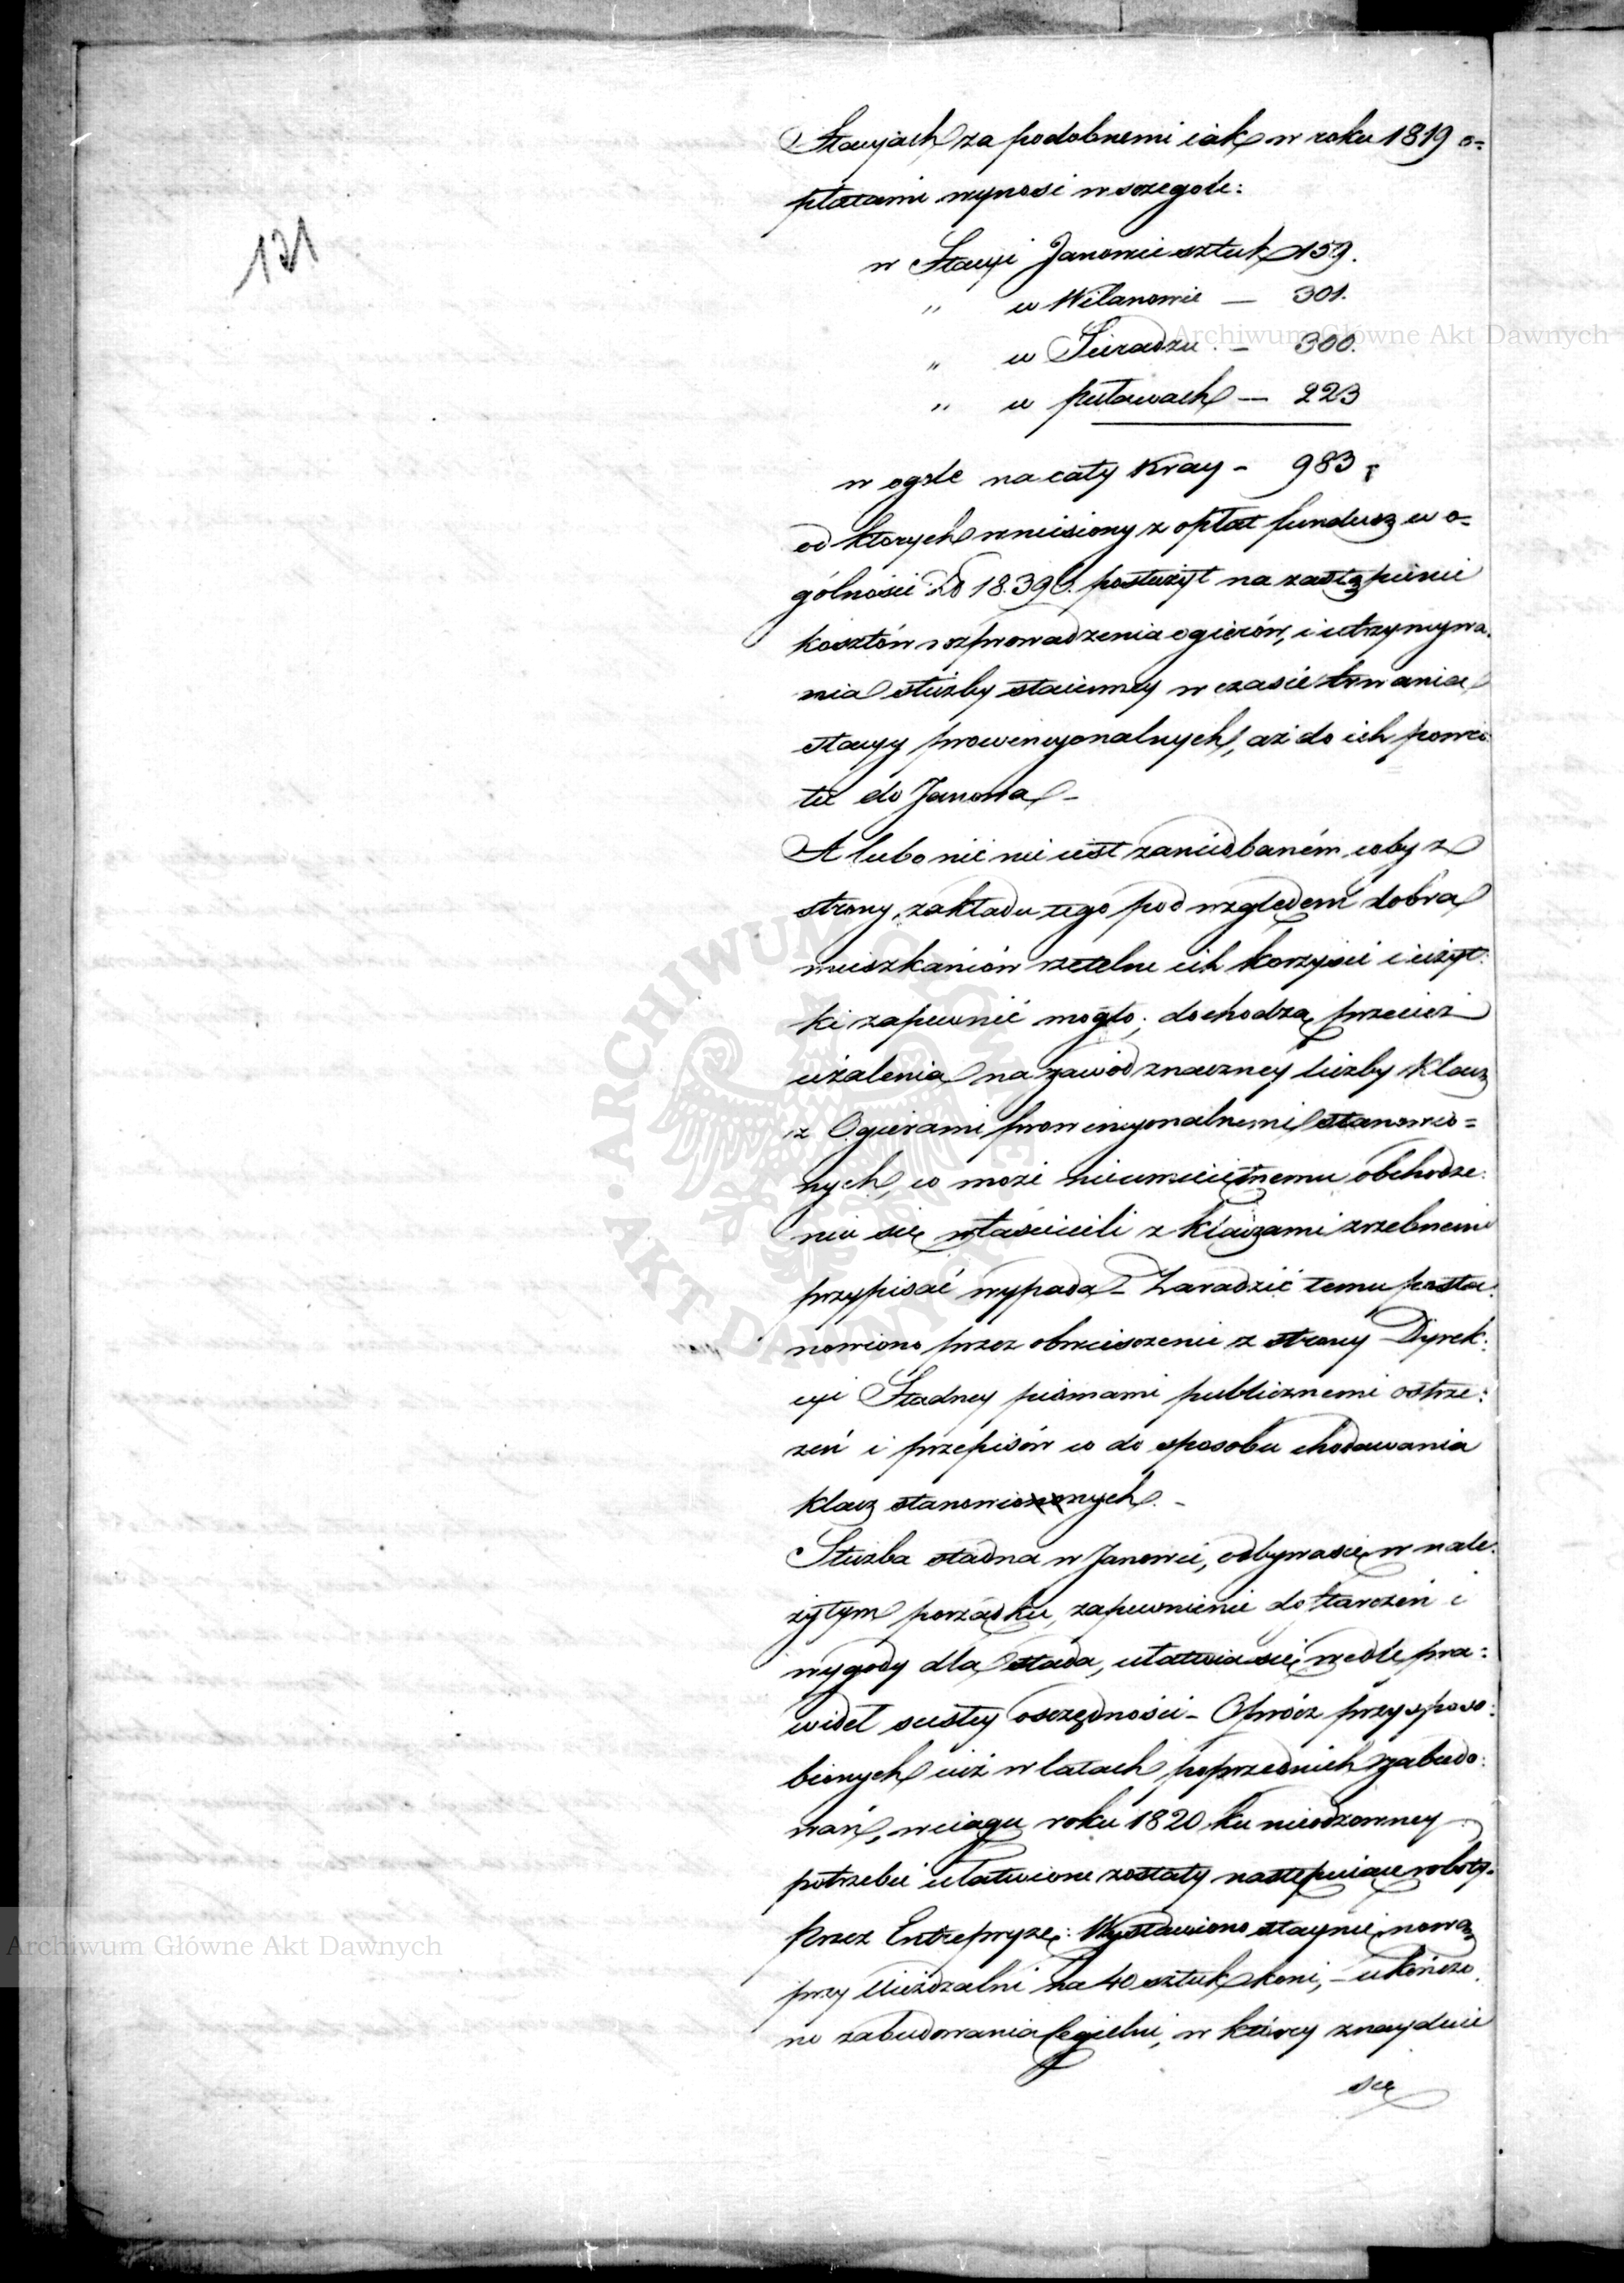 121
Stacyach za podobnemi iak w roku 1819 o=
płatami wynosi wszczegole:
w Stacyi Janowie sztuk 159.
" w Wilanowie — 301.
" w Sieradzu. — 300.
" w puławach — 223
w ogóle na cały Kray - 983,
od ktorych wniesiony z opłat fundusz w o=
gólności Zł 18.390. posłużył na zastąpienie
kosztów rozprowadzenia ogierów, i utrzymywa:
nia służby staienney w czasie trwania
stacyy prowincyonalnych, aż do ich powro:
tu do Janowa. -
A lubo nic nie iest zaniedbaném, coby z
strony zakładu tego pod względem dobra
mieszkańców rzetelne ich korzyści i użyt:
ki zapewnić mogło; dochodzą przecież
użalenia na zawód znaczney liczby Klacz
z Ogierami prowincyonalnemi stanowio=
nych, co może nieumieiętnemu obchodze:
niu się właścicieli z klaczami źrzebnemi
przypisać wypada - Zaradzić temu posta:
nowiono przez obwieszczenie z strony Dyrek:
cyi Stadney pismami publicznemi ostrze:
żeń i przepisów co do sposobu chodowania
klacz stanowionych. -
Służba stadna w Janowie, odbywa się w nale:
żytym porządku, zapewnienie dostarczeń i
wygody dla stada, ułatwia się wedle pra:
wideł scisłey oszczędności - Oprócz przysposo:
bionych iuż w latach poprzednich zabudo:
wań, w ciągu roku 1820 ku nieodzowney
potrzebie ułatwione zostały następuiące roboty.
przez Entrepryzę: Wystawiono staynię nową
przy Uieżdzalni na 40 sztuk koni, - ukończo:
no zabudowania Cegielni, w którey znayduie
się
Archiwum Główne Akt Dawnych
Archiwum Główne Akt Dawnych
ARCHIWUM GŁÓWNE • AKT DAWNYCH •